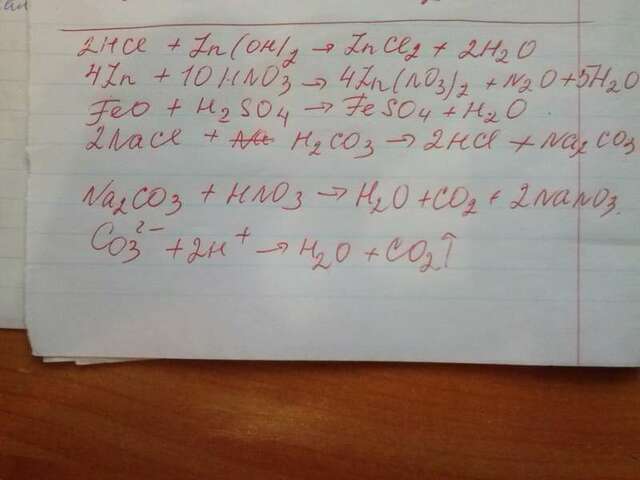 2HCl + Zn(OH)2 → ZnCl2 + 2H2O
4Zn + 10HNO3 → 4Zn(NO3)2 + N2O + 5H2O
FeO + H2SO4 → FeSO4 + H2O
2NaCl + H2CO3 → 2HCl + Na2CO3
Na2CO3 + HNO3 → H2O + CO2 + 2NaNO3.
CO3²⁻ + 2H⁺ → H2O + CO2↑